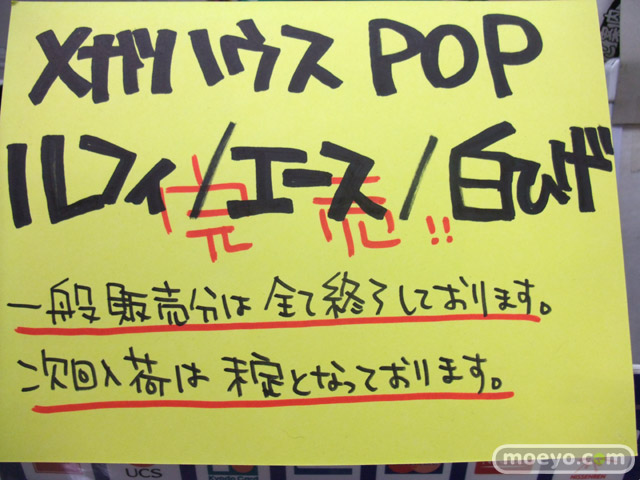 メガハウス POP
ルフィ/エース/白ひげ
完売!!
一般販売分は全て終了しております。
次回入荷は未定となっております。
UCS
moeyo.com